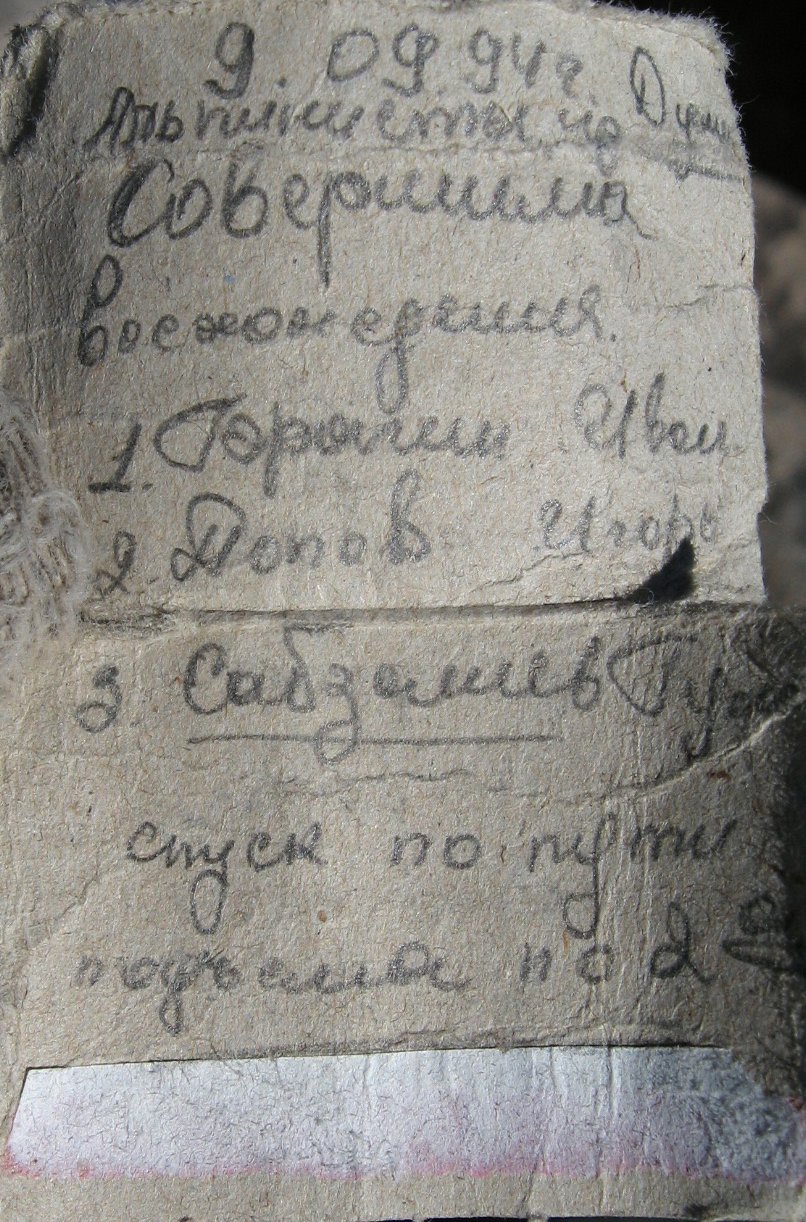 9. 09. 94 г.
Альпинисты из
Совершили
восхождения.
1. Горянин Иван
2. Попов Игорь
3. Сабзалиев
спуск по пути
подъема по 2